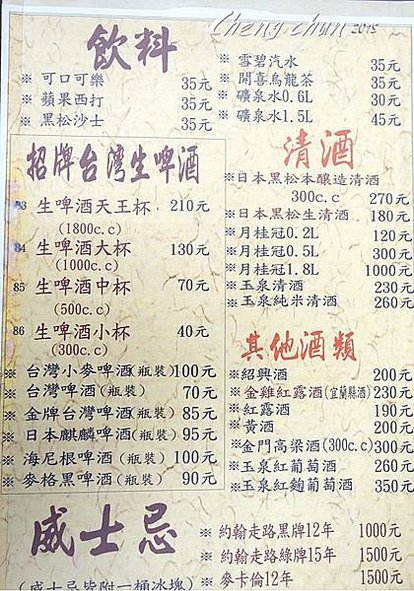 Cheng chun 2015
飲料
※ 可口可樂 35元
※ 蘋果西打 35元
※ 黑松沙士 35元
※ 雪碧汽水 35元
※ 開喜烏龍茶 35元
※ 礦泉水0.6L 30元
※ 礦泉水1.5L 45元
招牌台灣生啤酒
83 生啤酒天王杯 210元
(1800c.c)
84 生啤酒大杯 130元
(1000c.c)
85 生啤酒中杯 70元
(500c.c)
86 生啤酒小杯 40元
(300c.c)
※ 台灣小麥啤酒(瓶裝)100元
※ 台灣啤酒(瓶裝) 70元
※ 金牌台灣啤酒(瓶裝) 85元
※ 日本麒麟啤酒(瓶裝) 95元
※ 海尼根啤酒(瓶裝) 100元
※ 麥格黑啤酒(瓶裝) 90元
清酒
※日本黑松本釀造清酒
300c.c 270元
※日本黑松生清酒 180元
※月桂冠0.2L 120元
※月桂冠0.5L 300元
※月桂冠1.8L 1000元
※玉泉清酒 230元
※玉泉純米清酒 260元
其他酒類
※紹興酒 200元
※金雞紅露酒(宜蘭縣酒)230元
※紅露酒 190元
※黃酒 200元
※金門高梁酒(300c.c)300元
※玉泉紅葡萄酒 260元
※玉泉紅麴葡萄酒 350元
威士忌
(威士忌皆附一桶冰塊)
※ 約翰走路黑牌12年 1000元
※ 約翰走路綠牌15年 1500元
※ 麥卡倫12年 1500元